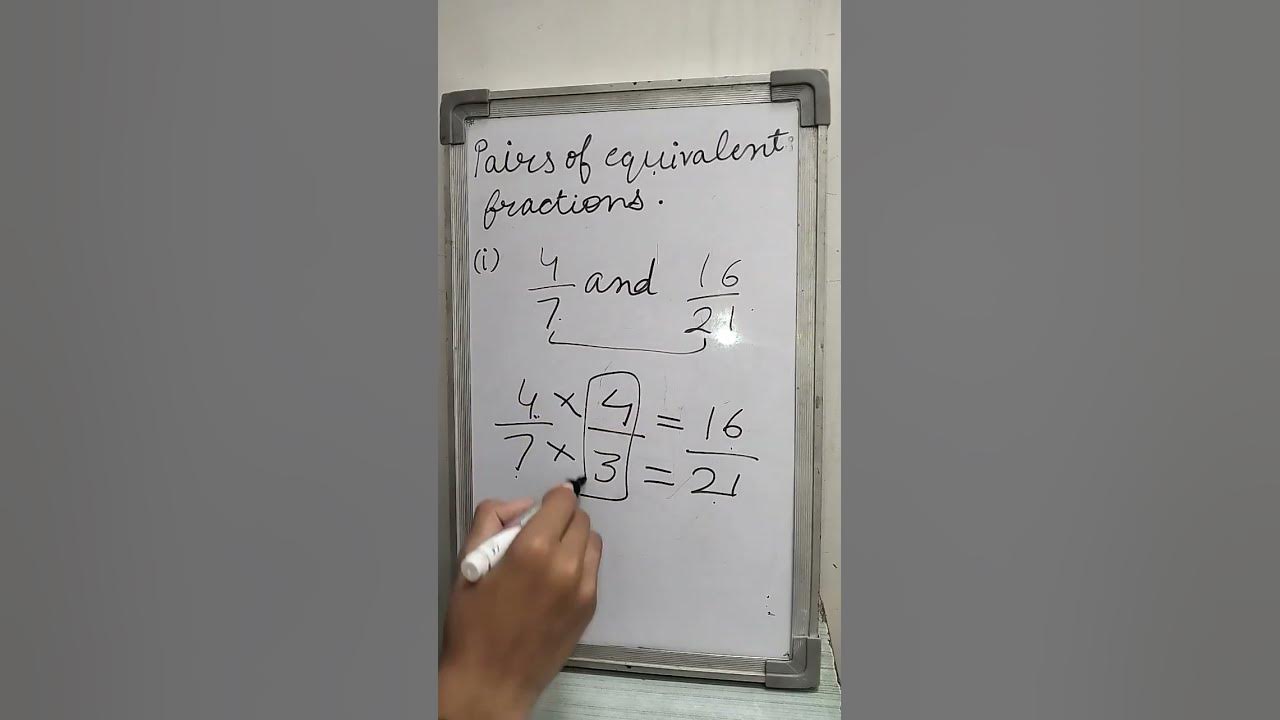 Pairs of equivalent
fractions.
(i) 4/7 and 16/21
4/7 × 4/3 = 16/21
× =